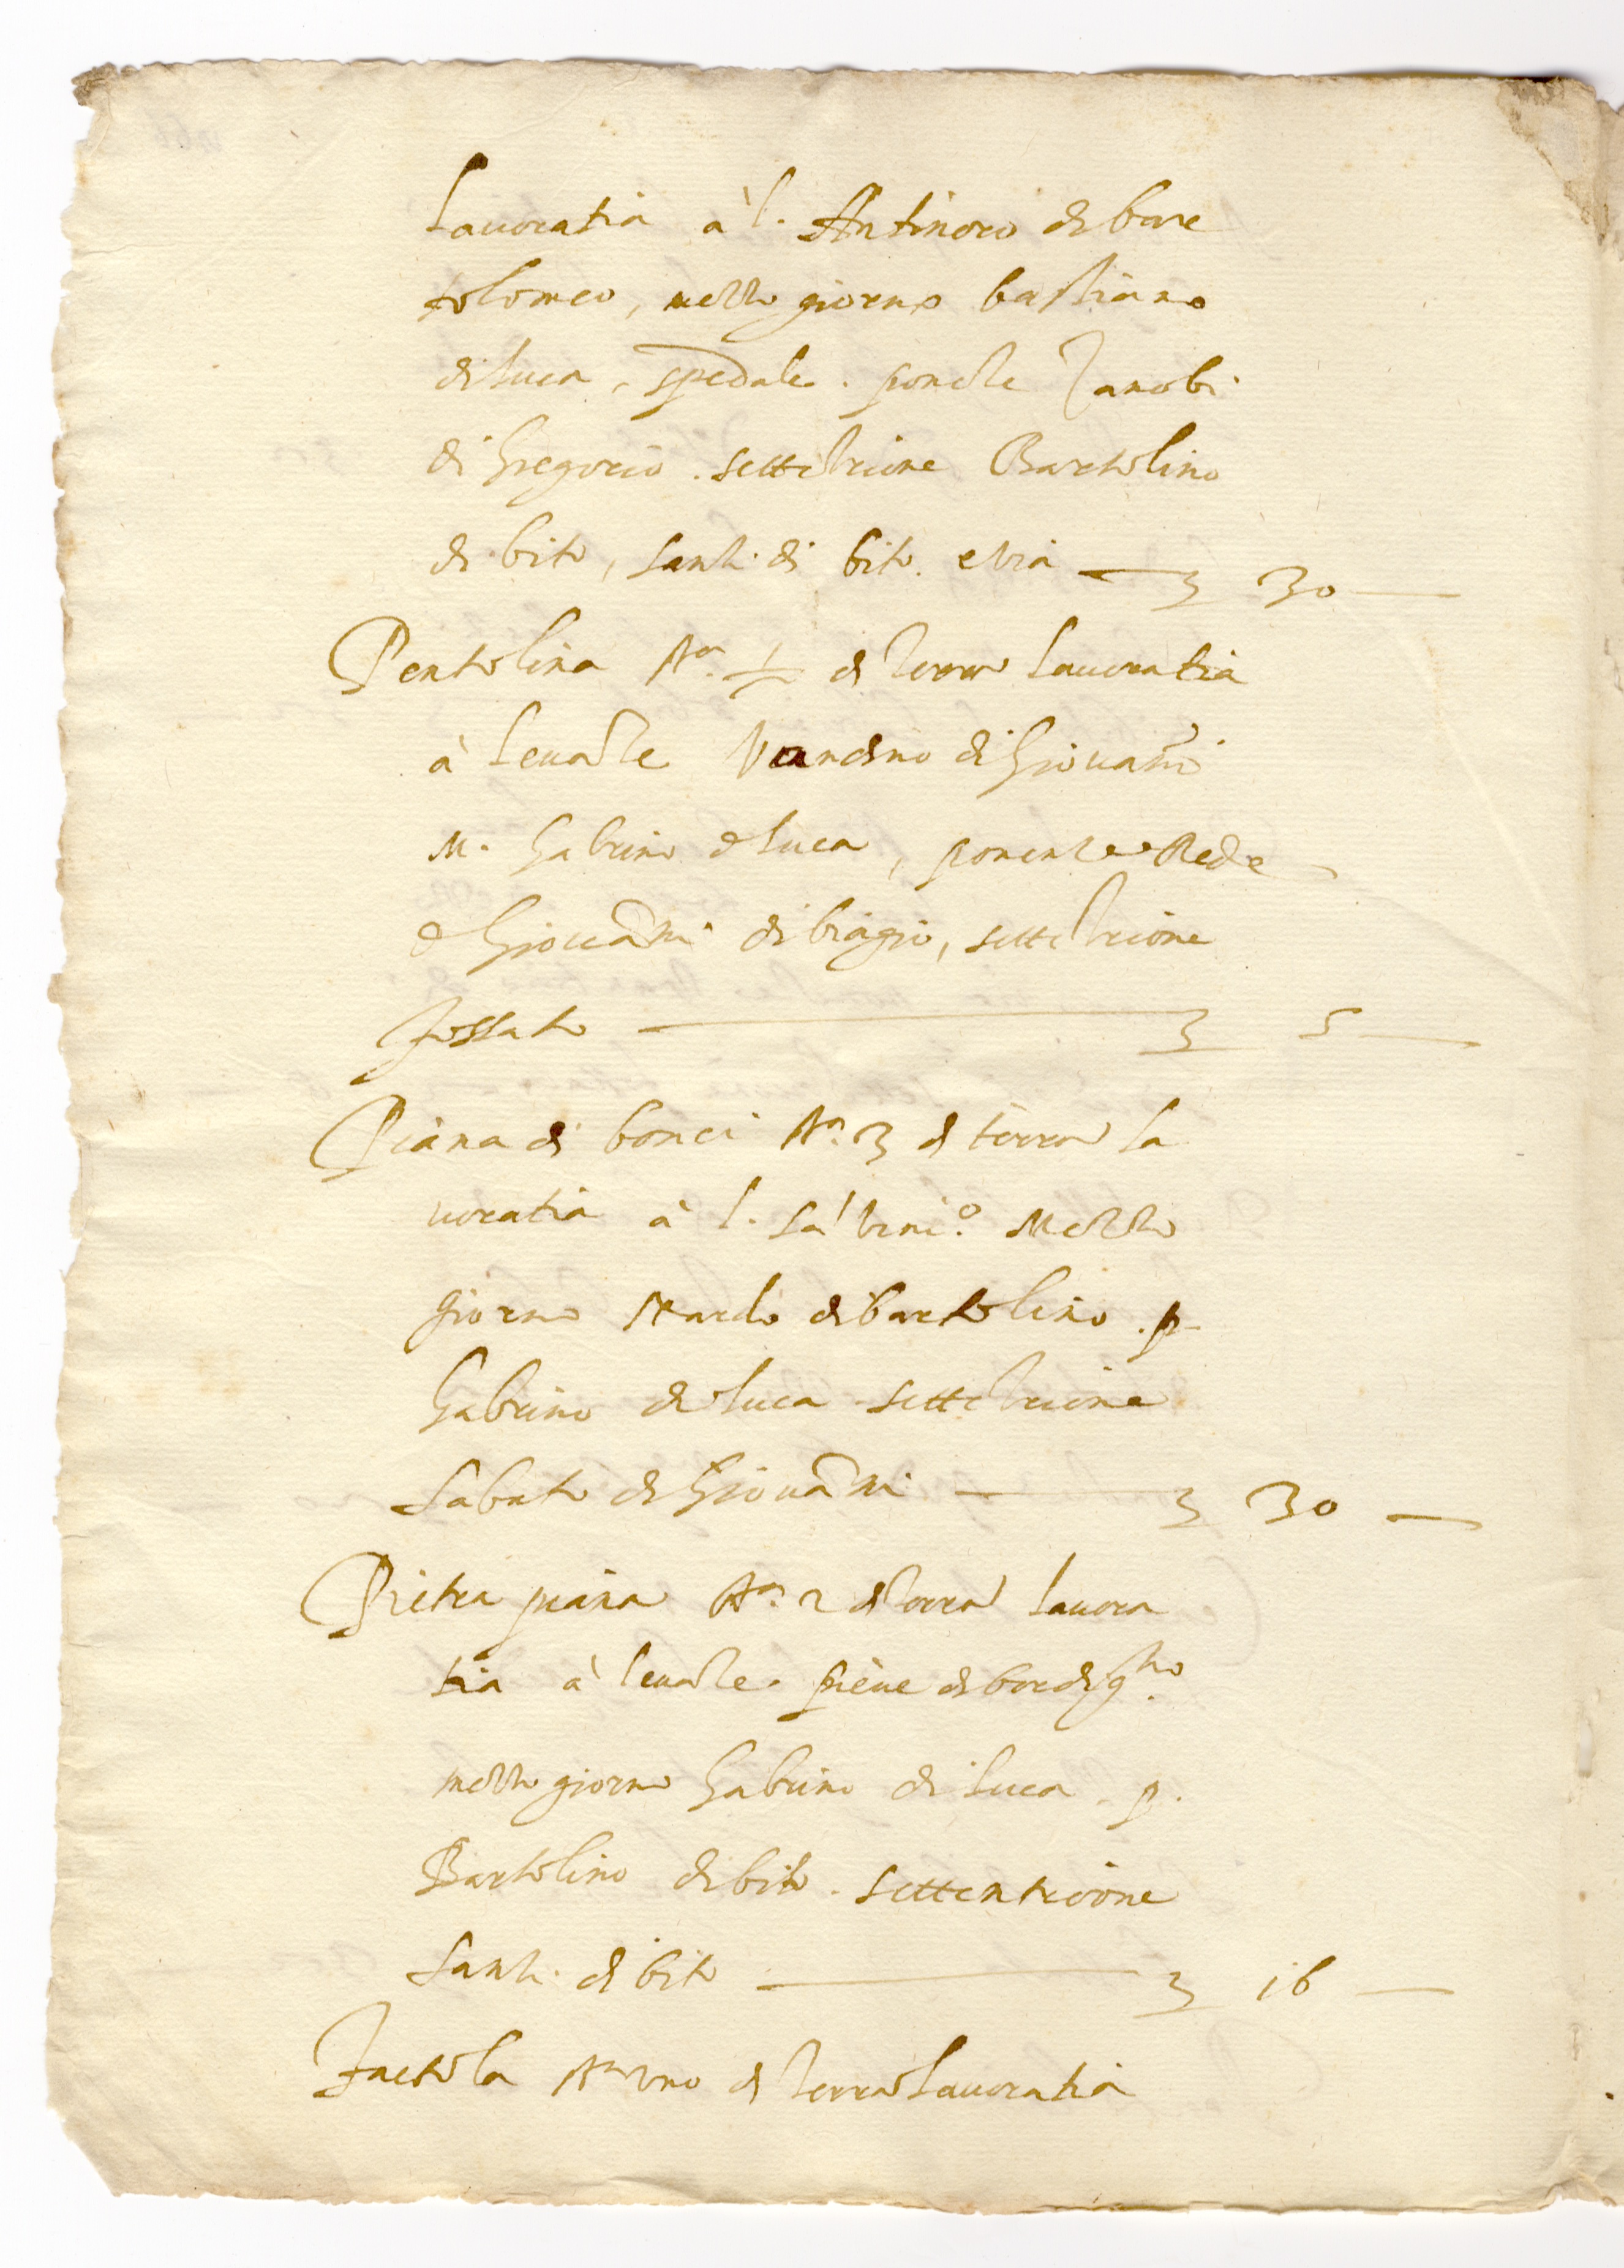 lauoratia à l. Antinoro di bare
tolomeo, mezzo giorno bastiano
di luca, spedale. ponēte Zanobi
di Gregorio. settētrione Bartolino
di bito, santi di bito. e via — 3 30 —
Pentolina st.a ½ di terra lauoratia
à leuāte Nandino di Giouāni
M. Gabrino di luca, ponente Rede
di Giouāni di biagio, settētrione
fossato — 3 5 —
Piana di bonci st.a 3 di terra la
uoratia à l. Mezzo
giorno Nardo di bartolino. p.
Gabrino di luca settētrione
Sabato di Giouāni — 3 30 —
Pietra piana st.a 2 di terra lauora
tia à leuāte. pieue di
mezzo giorno Gabrino di luca. p.
Bartolino di bito. settentrione
Santi di bito — 3 16 —
st.a uno di terra lauoratia